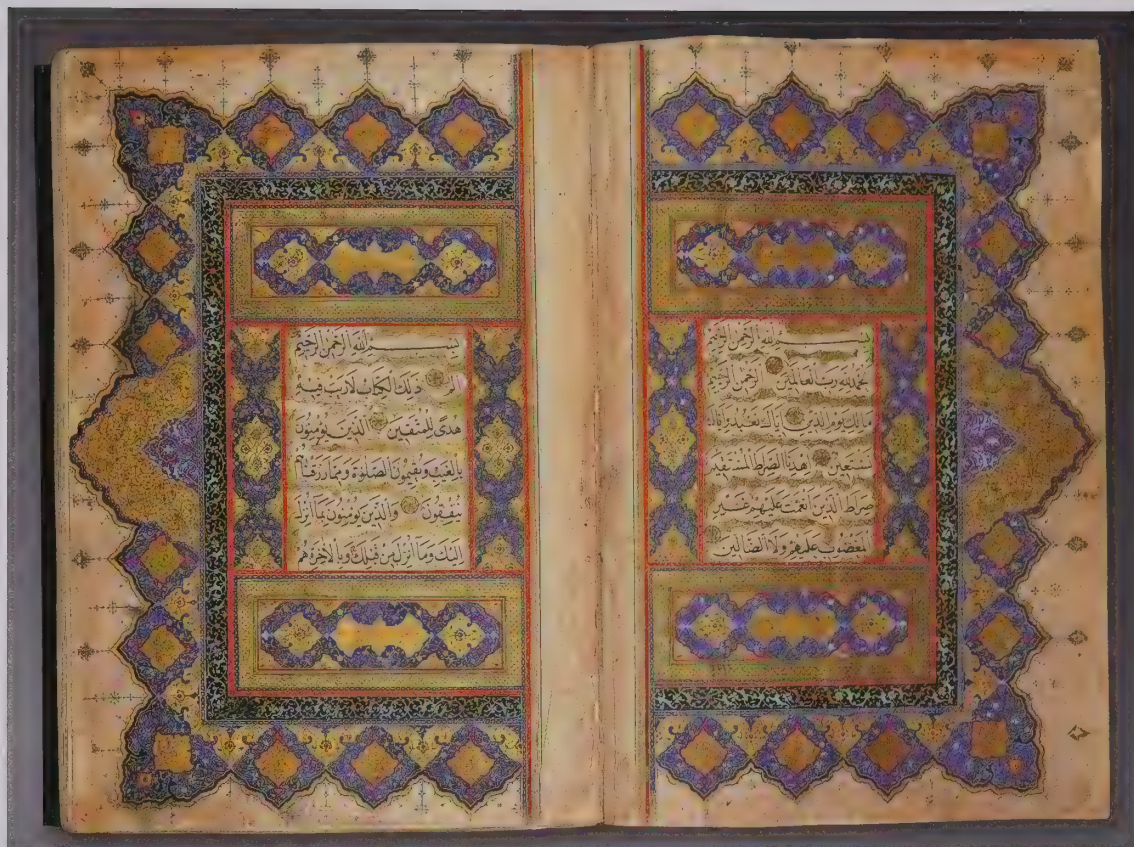 بِسْمِ اللَّهِ الرَّحْمَٰنِ الرَّحِيمِ
لحمد لله رب العالمين الرحمن الرحيم
مالك يوم الدين اياك نعبد واياك
نستعين اهدنا الصراط المستقيم
صراط الذين انعمت عليهم غير
المغضوب عليهم ولا الضالين
بِسْمِ اللَّهِ الرَّحْمَٰنِ الرَّحِيمِ
الم ذلك الكتاب لا ريب فيه
هدى للمتقين الذين يؤمنون
بالغيب ويقيمون الصلوة ومما رزقناهم
ينفقون والذين يؤمنون بما انزل
اليك وما انزل من قبلك وبالاخرة هم